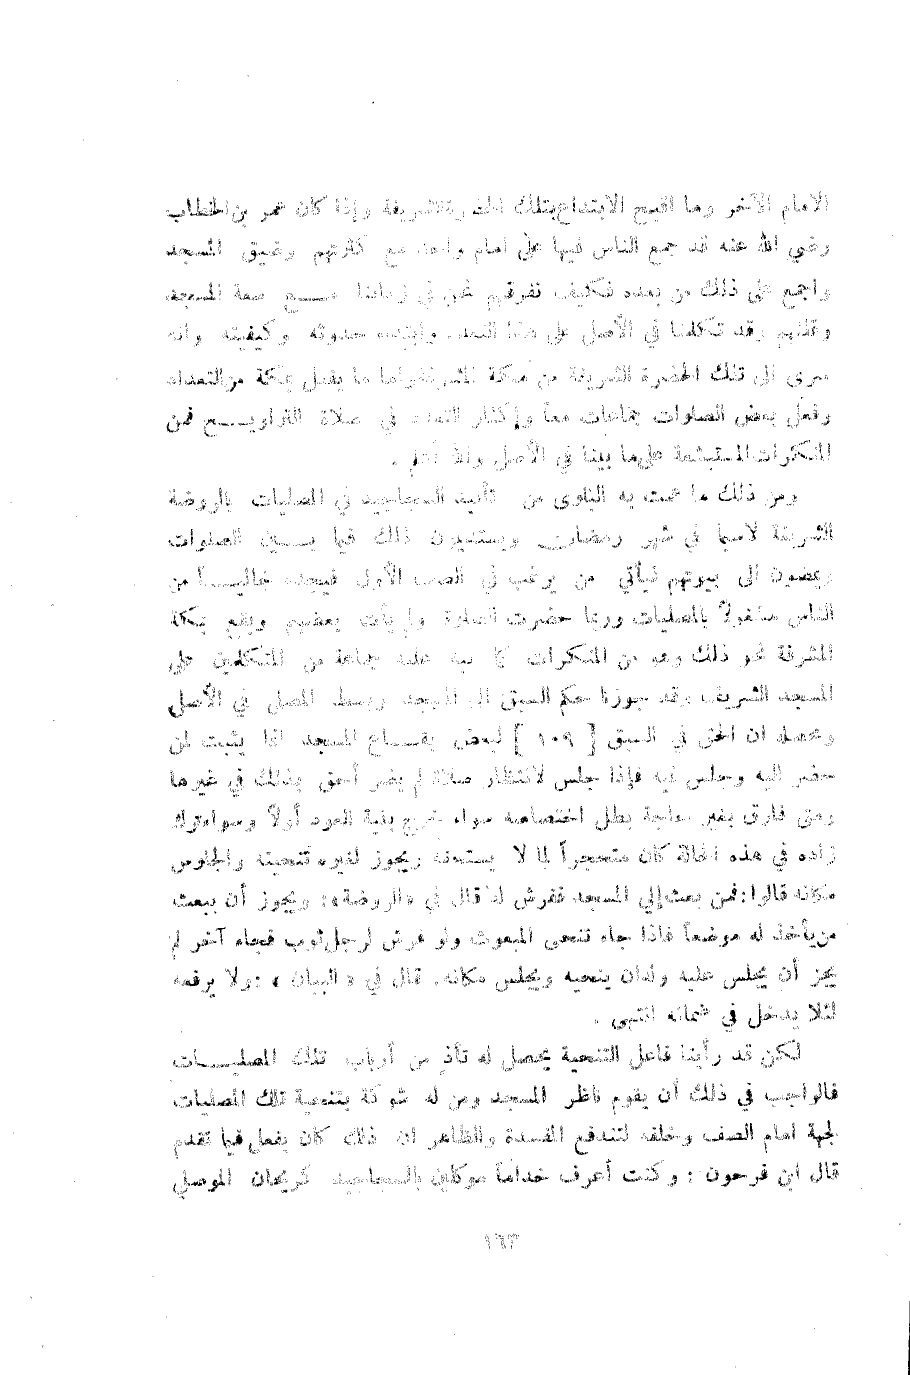 الامام الآخر وما اقبح الابتداع بتلك الحضرة الشريفة وإذا كان عمر بن الخطاب
رضي الله عنه قد جمع الناس فيها على امام واحد مع كثرتهم وضيق المسجد
واجمع على ذلك من بعده فكيف تفرقهم نحن في زماننا مــع سعة المسجد
وقلتهم وقد تكلمنا في الأصل على هذا التعدد وابتداء حدوثه وكيفيته وانه
سرى الى تلك الحضرة الشريفة من مكة المشرفة واما ما يفعل بمكة من التعداد
وفعل بعض الصلوات جماعات معاً وإكثار التعدد في صلاة التراويــح فمن
المنكرات المستبشعة على ما بينا في الأصل والله أعلم .
ومن ذلك ما عمت به البلوى من تأبيد السجاجيد في المصليات بالروضة
الشريفة لاسيما في شهر رمضان ويستديمون ذلك فيما بــين الصلوات
ويمضون الى بيوتهم فيأتي من يرغب في الصف الأول فيجده خاليــاً من
الناس مشغولاً بالمصليات وربما حضرت الصلاة ولم يأت بعضهم ويقع بمكة
المشرفة نحو ذلك وهو من المنكرات كما نبه عليه جماعة من المتكلمين على
المسجد الشريف وقد جوزنا حكم السبق الى المسجد وبسط المصلى في الأصل
ومحصله ان الحق في السبق [ ١٠٩ ] لبعض بقــاع المسجد انما يثبت لمن
حضر اليه وجلس فيه فإذا جلس لانتظار صلاة لم يصر أحق بذلك في غيرها
ومتى فارق بغير حاجة بطل اختصاصه سواء خرج بنية العود أولاً وسواء ترك
زاده في هذه الحالة كان متحجراً لما لا يستحقه ويجوز لغيره تنحيته والجلوس
مكانه قالوا : فمن بعث إلى المسجد ففرش له قال في «الروضة» : ويجوز أن يبعث
من يأخذ له موضعاً فاذا جاء تنحى المبعوث ولو فرش لرجل ثوب فجاء آخر لم
يجز أن يجلس عليه وله ان ينحيه ويجلس مكانه . قال في « البيان » : ولا يرفعه
لئلا يدخل في ضمانه انتهى .
لكن قد رأينا فاعل التنحية يحصل له تأذ من أرباب تلك المصليــات
فالواجب في ذلك أن يقوم ناظر المسجد ومن له شوكة بتنحية تلك المصليات
لجهة امام الصف وخلفه لتندفع المفسدة والظاهر ان ذلك كان يفعل فيما تقدم
قال ابن فرحون : وكنت أعرف خداماً موكلين بالسجاجيد كريحان الموصلي
١٦٣